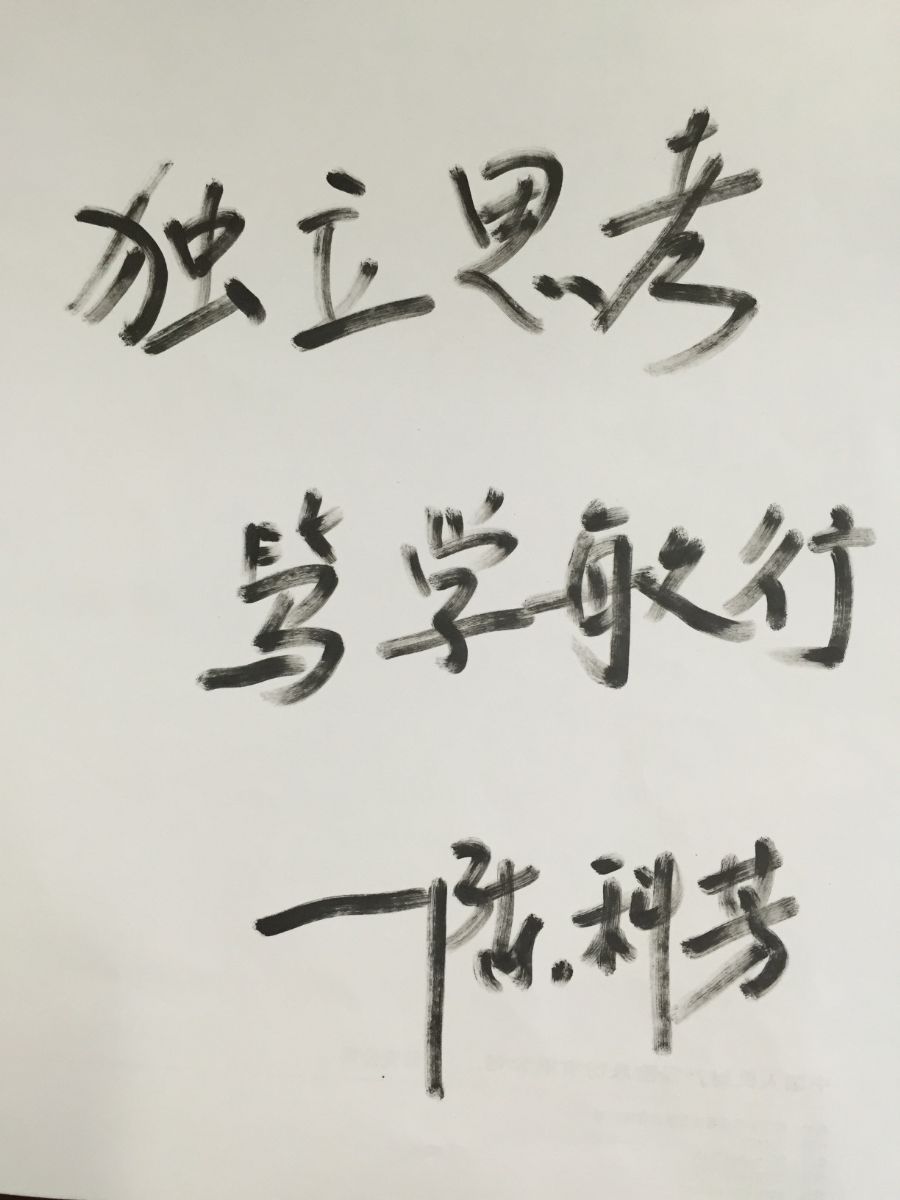 独立思考
笃学敏行
—陈科芳